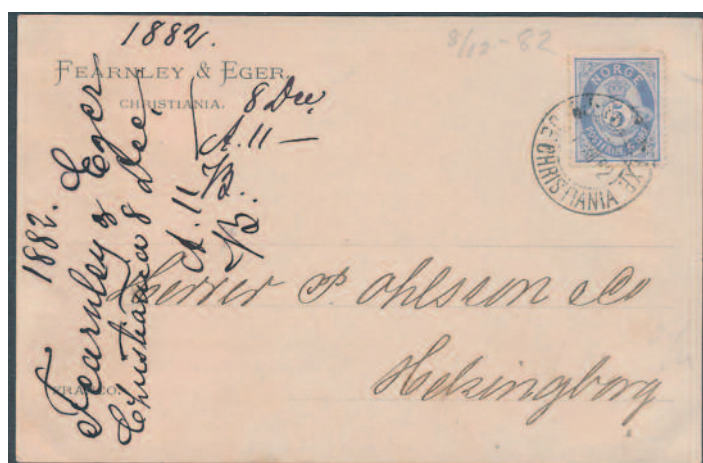 1882.
8/12-82
FEARNLEY & EGER.
CHRISTIANIA.
8 Dec.
A. 11 —
B.
NORGE
5
POSTFRIM
CHRISTIANIA
1882.
Fearnley & Eger
Christiania 8 Dec.
A. 11
B.
Herrer P. Ohlsson & Co
Helsingborg
FRANCO.